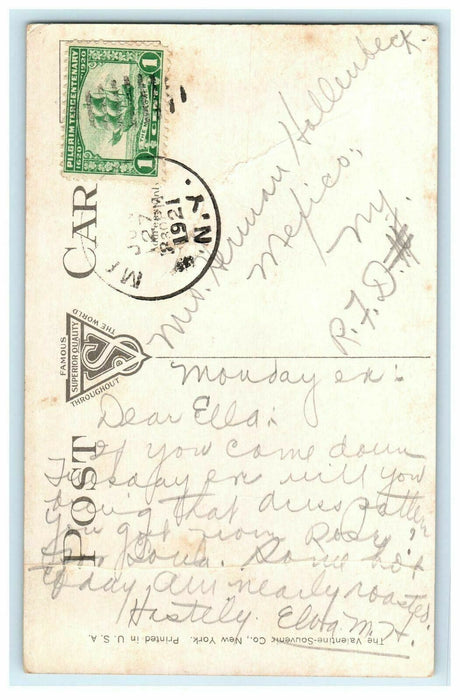 PILGRIM TERCENTENARY
1620 1920
1 CENT 1
JUN
27
1921
N.Y.
POST CARD
FAMOUS
SUPERIOR QUALITY
THROUGHOUT
THE WORLD
Mrs. Herman Hollenbeck.
Mexico,
N.Y.
R.F.D.
Monday ev.:
Dear Ella:
If you come down
Tuesday ev will you
bring that dress pattern
you got from Rosy
for Some hot
today am nearly roasted.
Hastily Elva M. H.
The Valentine-Souvenir Co., New York. Printed in U. S. A.